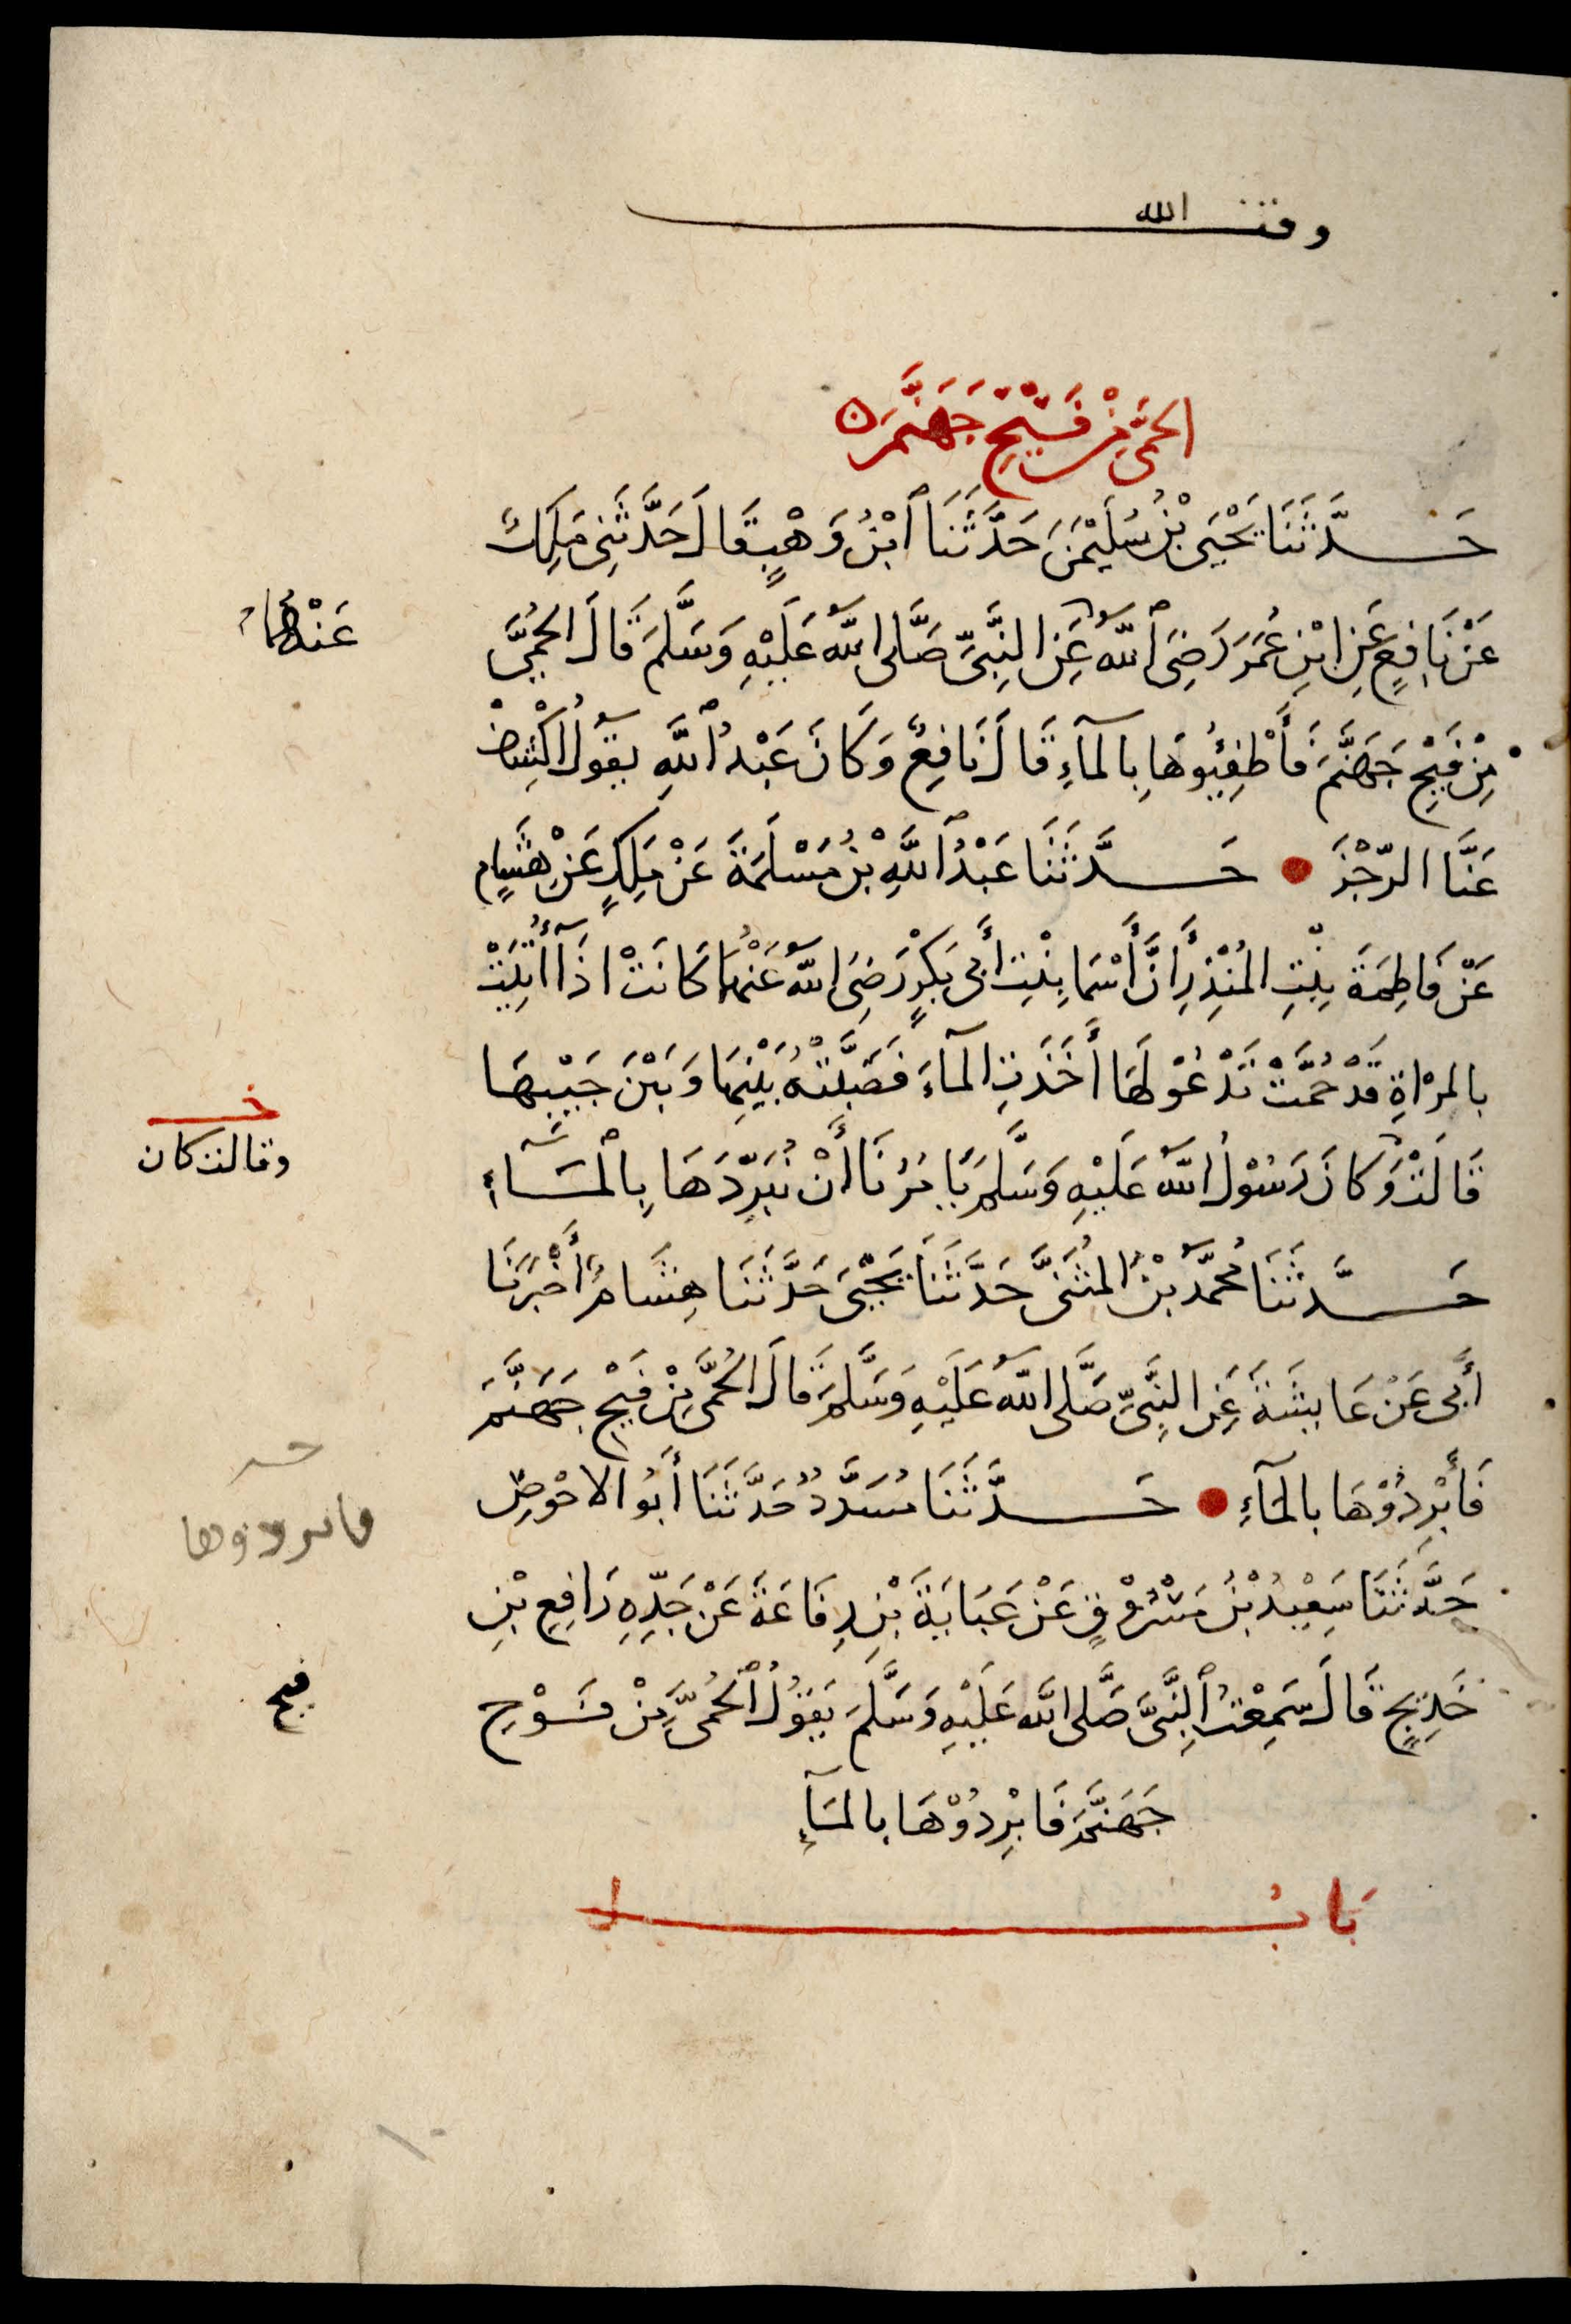 وقف الله
الحُمَّى مِنْ فَيْحِ جَهَنَّمَ
حَدَّثَنَا يَحْيَى بْنُ سُلَيْمٰنَ حَدَّثَنَا ٱبْنُ وَهْبٍ قَالَ حَدَّثَنِي مَلِكٌ
عَنْ نَافِعٍ عَنِ ابْنِ عُمَرَ رَضِيَ ٱللّٰهُ عَنِ النَّبِيِّ صَلَّى اللّٰهُ عَلَيْهِ وَسَلَّمَ قَالَ الحُمَّى
عَنْهُمَا
مِنْ فَيْحِ جَهَنَّمَ فَأَطْفِئُوهَا بِالمآءِ قَالَ نَافِعٌ وَكَانَ عَبْدُ ٱللّٰهِ يقَولُ اكْشِفْ
عَنَّا الرِّجْزَ حَدَّثَنَا عَبْدُ ٱللّٰهِ بْنُ مَسْلَمَةَ عَنْ مَلِكٍ عَنْ هِشَامٍ
عَنْ فَاطِمَةَ بِنْتِ المُنْذِرِ أَنَّ أَسْمَا بِنْتِ أَبِى بَكْرٍ رَضِيَ اللّٰهُ عَنْهُمَا كَانَتْ اذَآ أُتِيَتْ
بالمرْاةِ قَدْ حُمَّتْ تَدْعُوْ لَهَا أَخَذَتِ المآءَ فَصَبَّتْهُ بَيْنِهَا وَبَيْنَ جَيْبِهَا
قَالَتْ وَكَانَ رَسُوْلُ اللّٰهِ عَلَيْهِ وَسَلَّمَ يَامُرُنَا أَنْ نُبَرِّدَهَا بِٱلْمَآءِ
خ
وقالت كان
حَدَّثَنَا مُحَمَّدُ بْنُ المُثَنَّى حَدَّثَنَا يَحْيَى حَدَّثَنَا هِشَامٌ أَخْبَرَنَا
أَبِي عَنْ عَايشَةَ عَنِ النَّبِيِّ صَلَّى اللّٰهُ عَلَيْهِ وَسَلَّمَ قَالَ الحُمَّى مِنْ فَيْحِ جَهَنَّمَ
فَأَبْرِدُوْهَا بالمَآءِ حَدَّثَنَا مُسَدَّدٌ حَدَّثَنَا أَبُو الاحْوَصِ
فابردوها
حَدَّثَنَا سَعِيْدُ بْنُ مَسْرُوْقٍ عَنْ عَبَايَةَ بْنِ رِفَاعَةَ عَنْ جَدِّهِ رَافِعِ بْنِ
خَدِيْجٍ قَالَ سَمِعْتُ ٱلنَّبِيَّ صَلَّى اللّٰه عَلَيْهِ وَسَلَّمَ يَقُوْلُ ٱلْحُمَّى مِنْ فَوْحِ
فيح
جَهَنَّمَ فَابْرِدُوْهَا بالمَآءِ
بَابُ